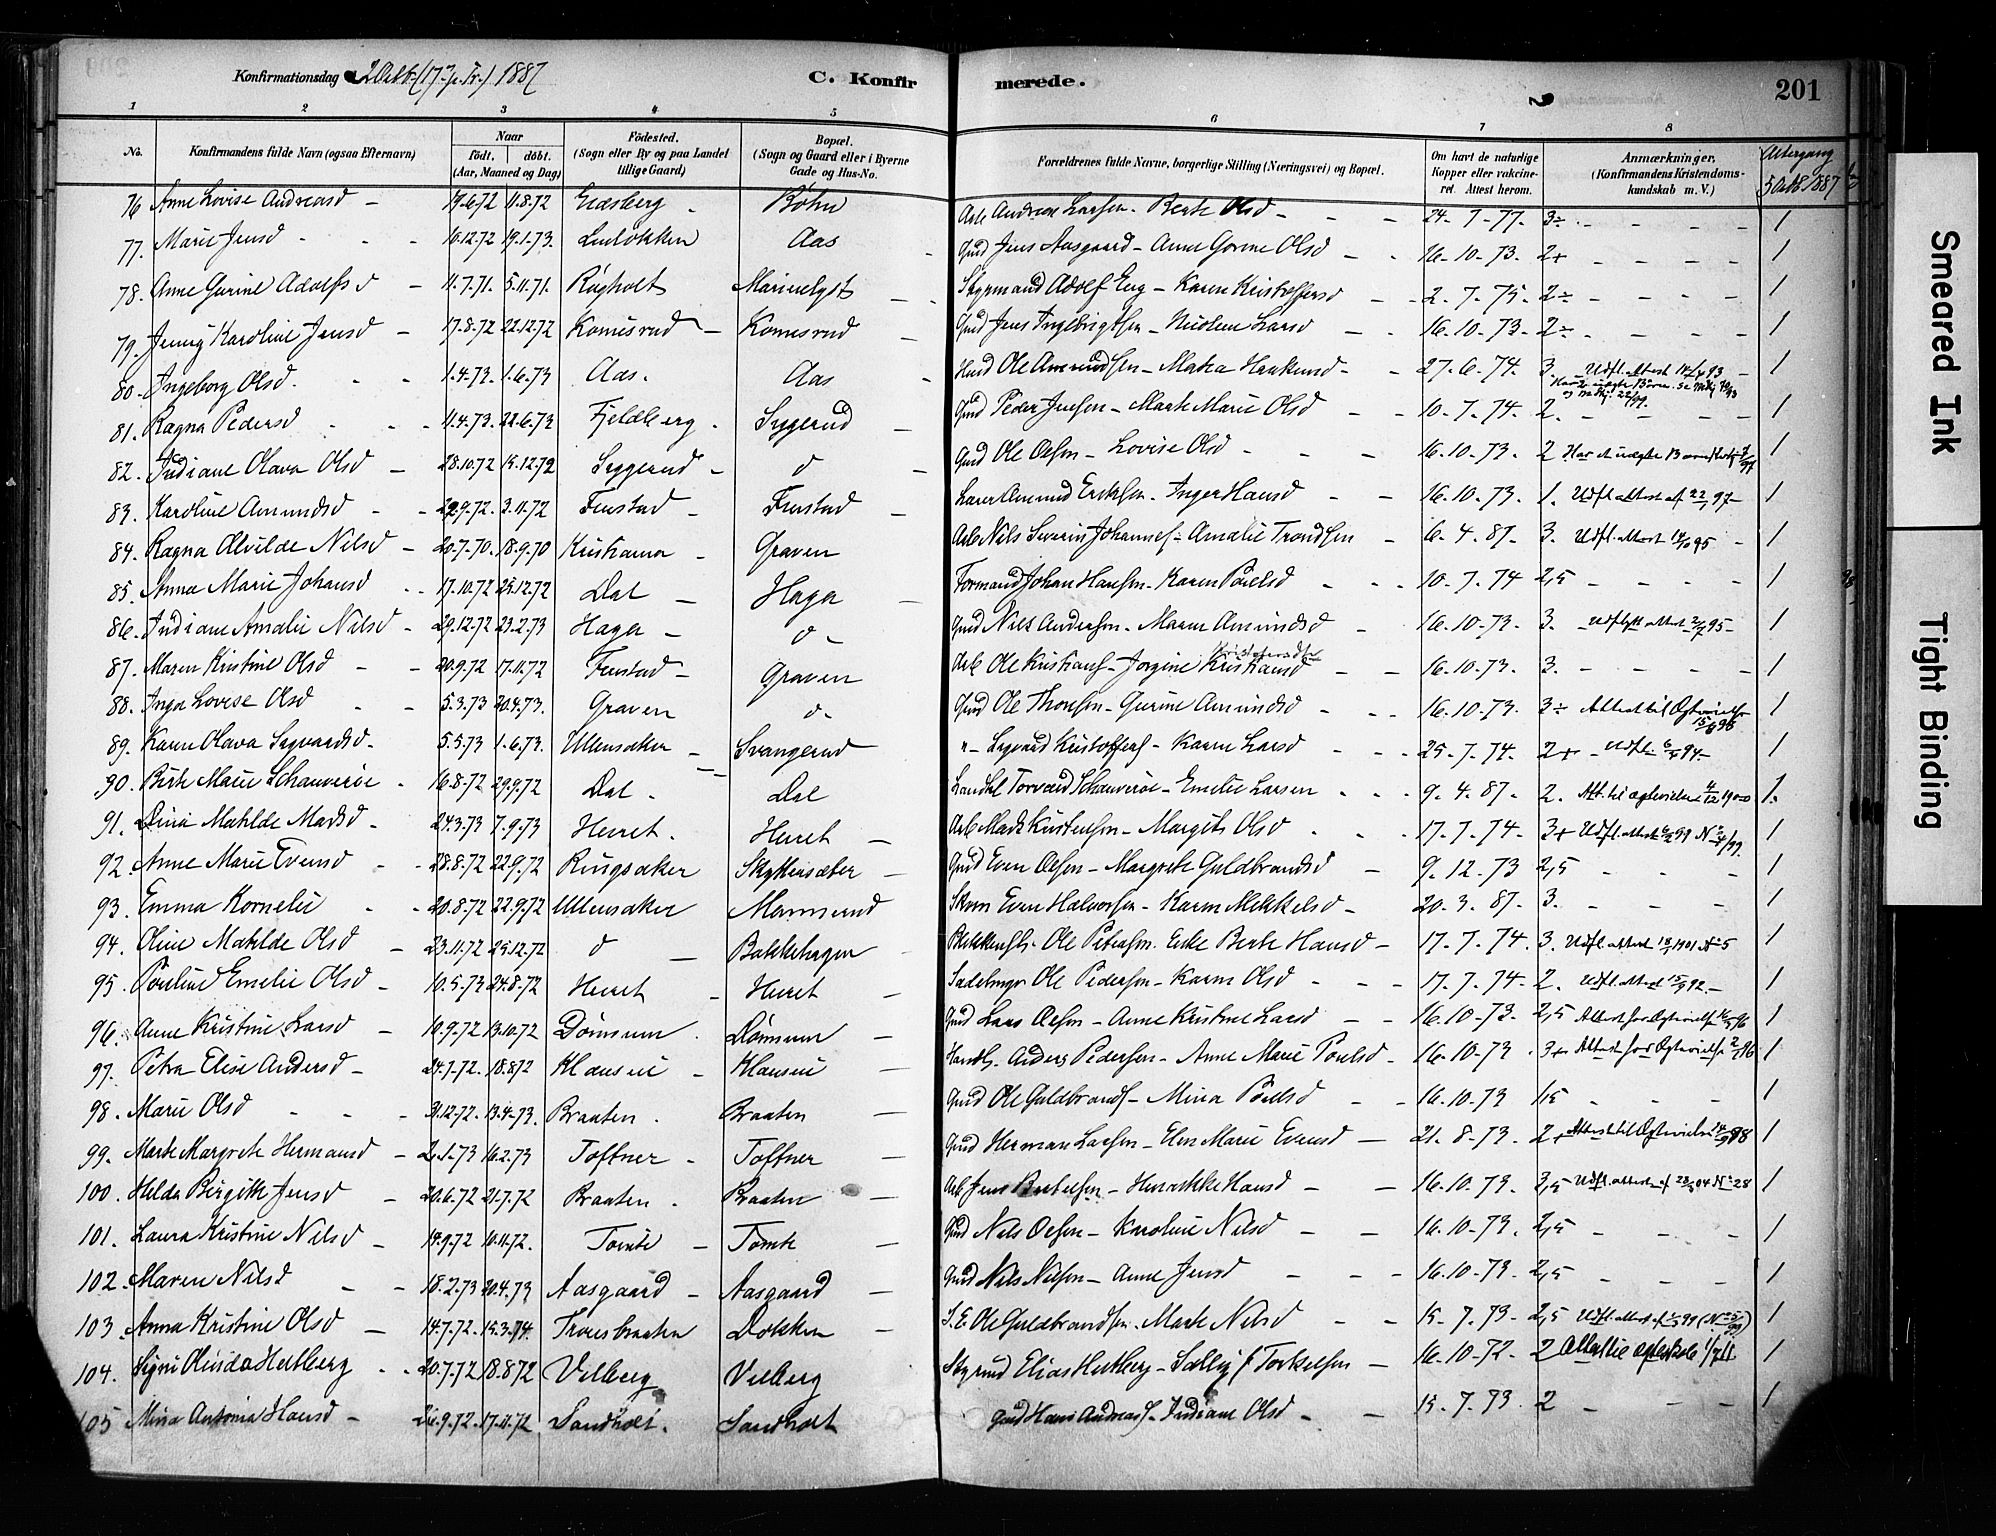 Konfirmationsdag 2 Oktb. (17 p. Tr.) 1887 C. Konfirmerede. 201
1 2 3 4 5 6 7 8
No. Konfirmandens fulde Navn (ogsaa Efternavn) Naar født, døbt. (Aar, Maaned og Dag) Fødested. (Sogn eller By og paa Landet tillige Gaard.) Bopæl. (Sogn og Gaard eller i Byerne Gade og Hus-No. Forældrenes fulde Navne, borgerlige Stilling (Næringsvei) og Bopæl. Om havt de naturlige Kopper eller vakcineret. Attest herom. Anmærkninger. (Konfirmandens Kristendomskundskab m. V.) Altergang 5 Okt 1887
76 Anne Lovise Andreasd - 19.6.72 11.8.72 Eidsberg Bøhn Arb Andreas Larsen - Berte Olsd - 24-7-77. 3÷ 1
77. Marie Jensd - 10.12.72 19.1.73. Aas Gmd Jens Aasgaard - Anne Gorine Olsd - 16-10-73. 2+ 1
78. Anne Gurine Adolfsd - 11.7.71. 5.11.71. Røgholt Marienlyst Styrmand Adolf Eng - Karen Kristoffersd - 2.7.75. 2÷ 1
79. Jenny Karoline Jensd - 17.8.72 22.12.72 Komisrud - Komisrud Gmd Jens Ingebrigtsen - Nicoline Larsd - 16-10-73-2÷ 1
80. Ingeborg Olsd. 1.4.73. 1.6.73 Aas. Aas Hmd Ole Amundsen - Mathea Haakensd - 27-6-74. 3. Udfl. attest 93 - 1
81. Ragna Pedersd 11.4.73. 22.6.73 Fjeldberg. Syggerud Gmd Peder Jensen - Marte Marie Olsd - 10-7-74. 2. 1
82. Indiane Olava Olsd - 28.10.72 15.12.72 Syggerud - d Gmd Ole Olsen - Lovise Olsd 16-10-73. 2 Har et uægte Barn 1
83. Karoline Amundsd - 22.9.72. 3.11.72 Finstad - Finstad Lærer Amund Eriksen - Inger Hansd - 16.10-73. 1. Udfl. attest af 97 - 1
84. Ragna Alvilde Nilsd - 20.7.70. 18.9.70 Kristiania - Graven Arb Nils Severin Johannes - Amalie Trondsen - 6-4-87. 3. Udfl. attest 95 - 1
85. Anna Marie Johansd 17.10.72 25.12.72 Dal - Haga Formand Johan Hansen - Karen Poulsd 10-7-74 2,5 1
86. Indiane Amalie Nilsd - 29.12.72 23.2.73 Haga - d - Gmd Nils Andersen - Maren Amundsd - 16-10-73. 3. - Udflytt attest 95 - 1
87. Maren Kristine Olsd - 20.9.72 17.11.72 Finstad - Graven Arb Ole Kristians - Jorgine Kristiansd - 16-10-73. 3. 1
88. Inga Lovise Olsd 5.3.73 20.4.73. Graven d - Gmd Ole Thonsen - Gurine Amundsd 16.10-73. 3÷ Attest til Egtevielse 96 1
89. Karen Olava Sygvardsd - 5.5.73 1.6.73. Ullensaker - Svangerud " - Sygvard Kristoffers - Karen Larsd - 25-7-74. 2+ Udfl. 94 - 1
90. Birte Marie Schauverøe - 16.8.72 29.9.72 Dal - Dal Landhl Torvald Schauverøe - Emelie Larsen - 9-4-87. 2. Att. til egtevielse 1900 1.
91. Dina Matilde Madsd - 24.3.73 7.9.73 Herret. Herret - Arb Mads Kristensen - Margith Olsd 17-7-74. 3+ Udfl. attest 99 1
92. Anne Marie Evensd 28.8.72 22.9.72 Ringsaker Skytterisæter - Gmd Even Olsen - Margrethe Guldbrandsd - 9.12.73 2,5 1
93. Emma Kornelie - 20.8.72 22.9.72 Ullensaker Mormerud Skom Even Halvorsen - Karen Mikkelsd - 20-3.87. 3. 1
94. Oline Matilde Olsd - 23.11.72 25.12.72 d - Bakkehagen Ole Petersen. Enke Berte Hansd - 17.7.74. 3. Udfl. attest 1901 N 5 1
95 Pouline Emelie Olsd - 10.5.73 24.8.72 Herret - Herret - Sadelmgr Ole Pedersen - Karen Olsd - 17-7-74-2. Udfl. attest 92. - 1
96. Anne Kristine Larsd - 19.9.72 13.10.72 Dømsum. Dømsum - Gmd Lars Olsen - Anne Kristine Larsd - 16.10-73. 2,5 Attest for Egtevielse 96 1
97. Petra Elise Andersd - 24.7.72. 18.8.72 Klauseie - Klauseie - Handl. Anders Pedersen - Anne Marie Poulsd - 16-10-73 3+ Attest for Egtevielse 96 1
98. Marie Olsd 31.12.72. 13.4.73. Braaten. Braaten - Gmd Ole Guldbrands - Mina Poulsd - 16-10-73 1,5 1
99. Marte Margrete Hermansd - 2.1.73 16.2.73 Toftner - Toftner - Gmd Herman Larsen - Elen Marie Evensd - 21-8-73. 2+ Attest til Egtevielse 98 1
100. Hilda Birgitte Jensd - 20.6.72 21.7.72 Braaten. Braaten - Arb Jens Bertelsen - Henrikke Hansd - 16.10.73. 3,5 Udfl. attest af 04 N 28 1
101. Laura Kristine Nilsd - 14.9.72 10.11.72. Tomte - Tomte - Gmd Nils Olsen - Karoline Nilsd - 16.10-73. 2,5 1
102. Maren Nilsd - 18.2.73 20.4.73 Aasgaard - Aasgaard - Gmd Nils Nilsen - Anne Jensd - 16.10-73. 2,5 1
103. Anna Kristine Olsd - 14.7.72. 15.3.74. Tronsbraaten Dokken - S.E. Ole Guldbrandsen. Marte Nilsd 15-7-73. 2,5 Udfl. attest af 99 1
104. Signe Olinda Hertberg 20.7.72 18.8.72 Velberg Velberg Styrmd Elias Hertberg - Sally f. Torkelsen - 16.10-72-2 1
105 Mina Antonia Hansd - 26.9.72 17.11.72 Sandholt. Sandholt Gmd Hans Andreas - Indiane Olsd - 15-7-73 2 1
Smeared Ink
Tight Binding